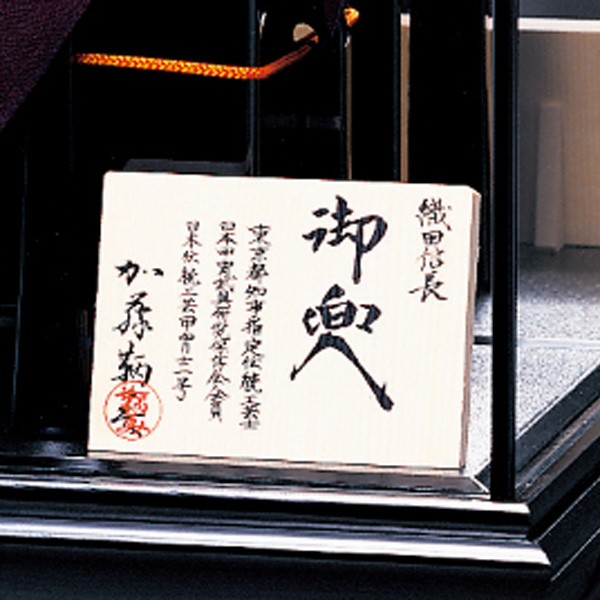 織田信長
御兜
東京都知事指定伝統工芸士
日本甲冑武具研究保存会会員
日本伝統工芸甲冑士
加藤鞆